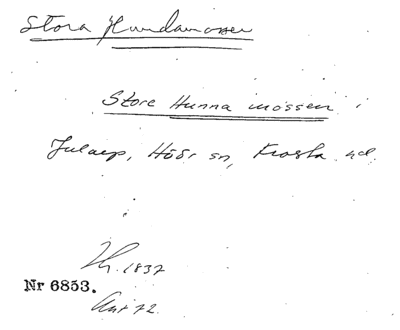 Stora Hundamossen
Store Hunna mossen i
Jularp, Höör sn, Frosta hd.
Hy. 1837
Nr 6853.
Akt 72.